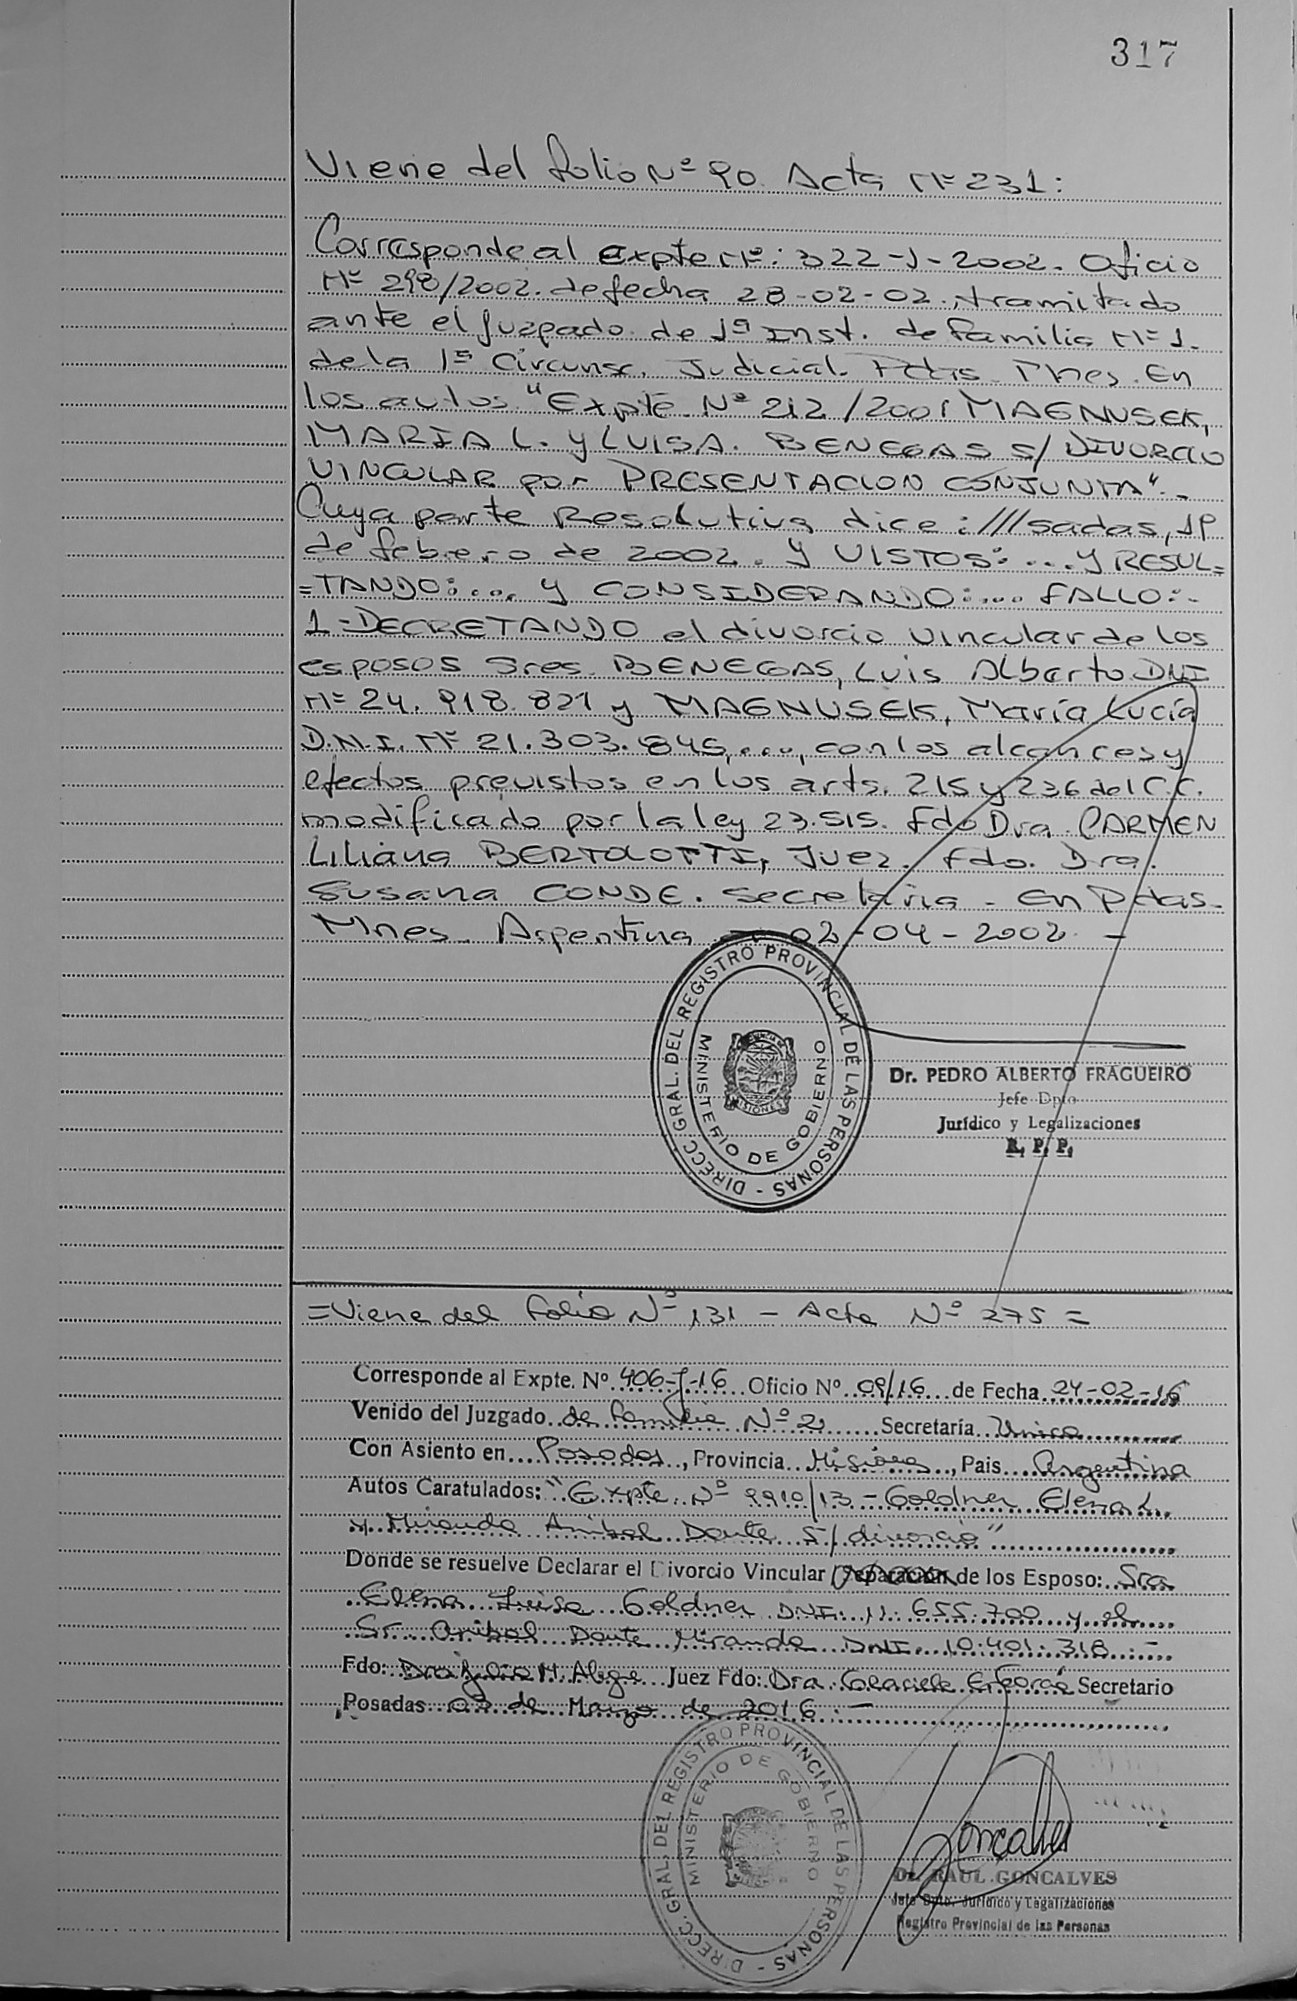 317
Viene del folio Nº 90. Acta Nº 231:
Corresponde al expte Nº: 322-J-2002. Oficio
Nº 298/2002. de fecha 28-02-02. tramitado
ante el Juzgado de 1ª Inst. de familia Nº 1.
de la 1ª Circunsc. Judicial. Pdas. Mnes. En
los autos "Expte Nº 212/2001 MAGNUSEK,
MARIA L. y LUIS A. BENEGAS S/ DIVORCIO
VINCULAR por PRESENTACION CONJUNTA".-
Cuya parte Resolutiva dice: ///sadas, 19
de febrero de 2002. Y VISTOS:...y RESUL=
=TANDO:... y CONSIDERANDO:... FALLO:-
1-DECRETANDO el divorcio vincular de los
esposos Sres. BENEGAS, Luis Alberto DNI
Nº 24.918.821 y MAGNUSEK, María Lucía
D.N.I. Nº 21.303.845,..., con los alcances y
efectos previstos en los arts. 215 y 236 del C.C.
modificado por la ley 23.515. Fdo Dra. CARMEN
Liliana BERTOLOTTI, Juez. Fdo. Dra.
Susana CONDE. Secretaria - En Pdas-
Mnes. Argentina - 02-04-2002 -
DIRECC. GRAL. DEL REGISTRO PROVINCIAL DE LAS PERSONAS -
MINISTERIO DE GOBIERNO
MISIONES
Dr. PEDRO ALBERTO FRAGUEIRO
Jefe Dpto
Jurídico y Legalizaciones
R. P. P.
=Viene del folio Nº 131 - Acta Nº 275=
Corresponde al Expte. Nº 406-J-16 Oficio Nº 09/16 de Fecha 24-02-16
Venido del Juzgado de familia Nº 2 Secretaría Unica
Con Asiento en Posadas, Provincia Misiones, Pais Argentina
Autos Caratulados: "Expte Nº 9910/13 - Goldner Elena L.
y Miranda Anibal Dante S/ divorcio"
Donde se resuelve Declarar el Divorcio Vincular de los Esposo: Sra
Elena Luisa Goldner DNI. 11.655.700 y el
Sr. Anibal Dante Miranda DNI. 10.401.318.-
Fdo: Juez Fdo: Dra. Graciela Secretario
Posadas 03 de Marzo de 2016.-
DIRECC. GRAL. DEL REGISTRO PROVINCIAL DE LAS PERSONAS -
MINISTERIO DE GOBIERNO
Goncalves
Dr. RAUL GONCALVES
Jefe Dpto. Jurídico y Legalizaciones
Registro Provincial de las Personas